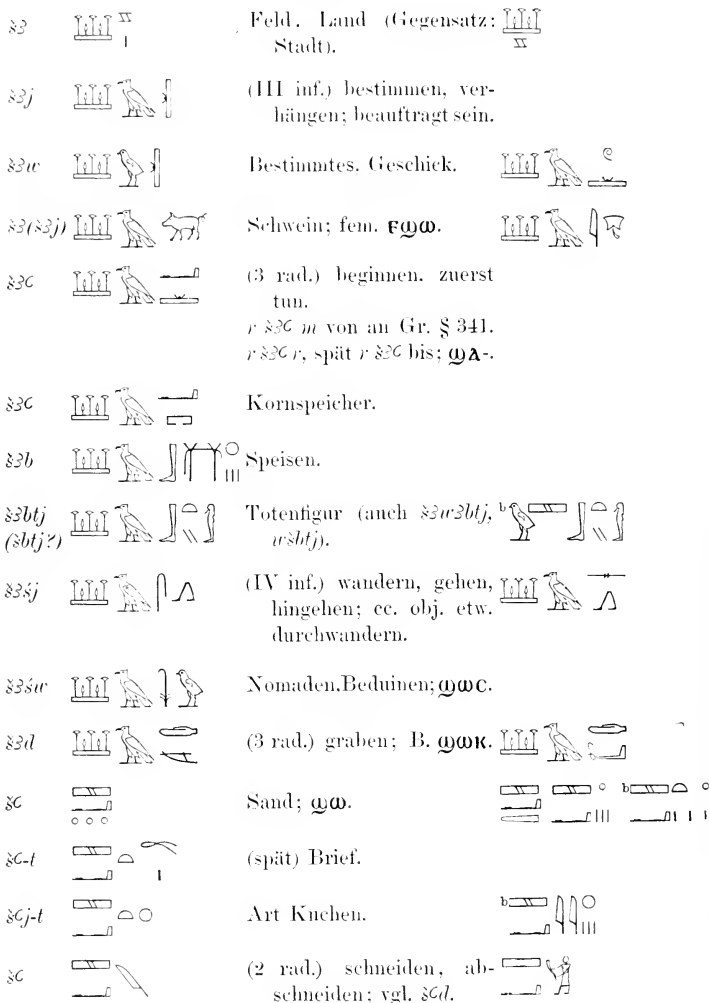 š3 Feld. Land (Gegensatz:
Stadt).
š3j (III inf.) bestimmen, ver-
hängen; beauftragt sein.
š3w Bestimmtes. Geschick.
š3(š3j) Schwein; fem. ⲉϣⲱ.
š3ꜥ (3 rad.) beginnen. zuerst
tun.
r š3ꜥ m von an Gr. § 341.
r š3ꜥ r, spät r š3ꜥ bis; ϣⲁ-.
š3ꜥ Kornspeicher.
š3b Speisen.
š3btj Totenfigur (auch š3w3btj, b
(šbtj?) wšbtj).
š3śj (IV inf.) wandern, gehen,
hingehen; cc. obj. etw.
durchwandern.
š3św Nomaden. Beduinen; ϣⲱⲥ.
š3d (3 rad.) graben; B. ϣⲱⲕ.
šꜥ Sand; ϣⲱ. b
šꜥ-t (spät) Brief.
šꜥj-t Art Kuchen. b
šꜥ (2 rad.) schneiden, ab-
schneiden; vgl. šꜥd.